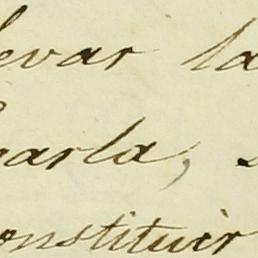 levar la
arla,
onstituir